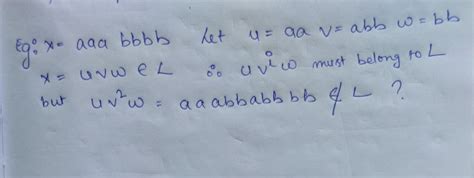 Eg: x = aaa bbbb Let u = aa v = abb w = bb
x = uvw ∈ L ∴ uv²w must belong to L
but uv²w = aaabbabbbb ∉ L ?